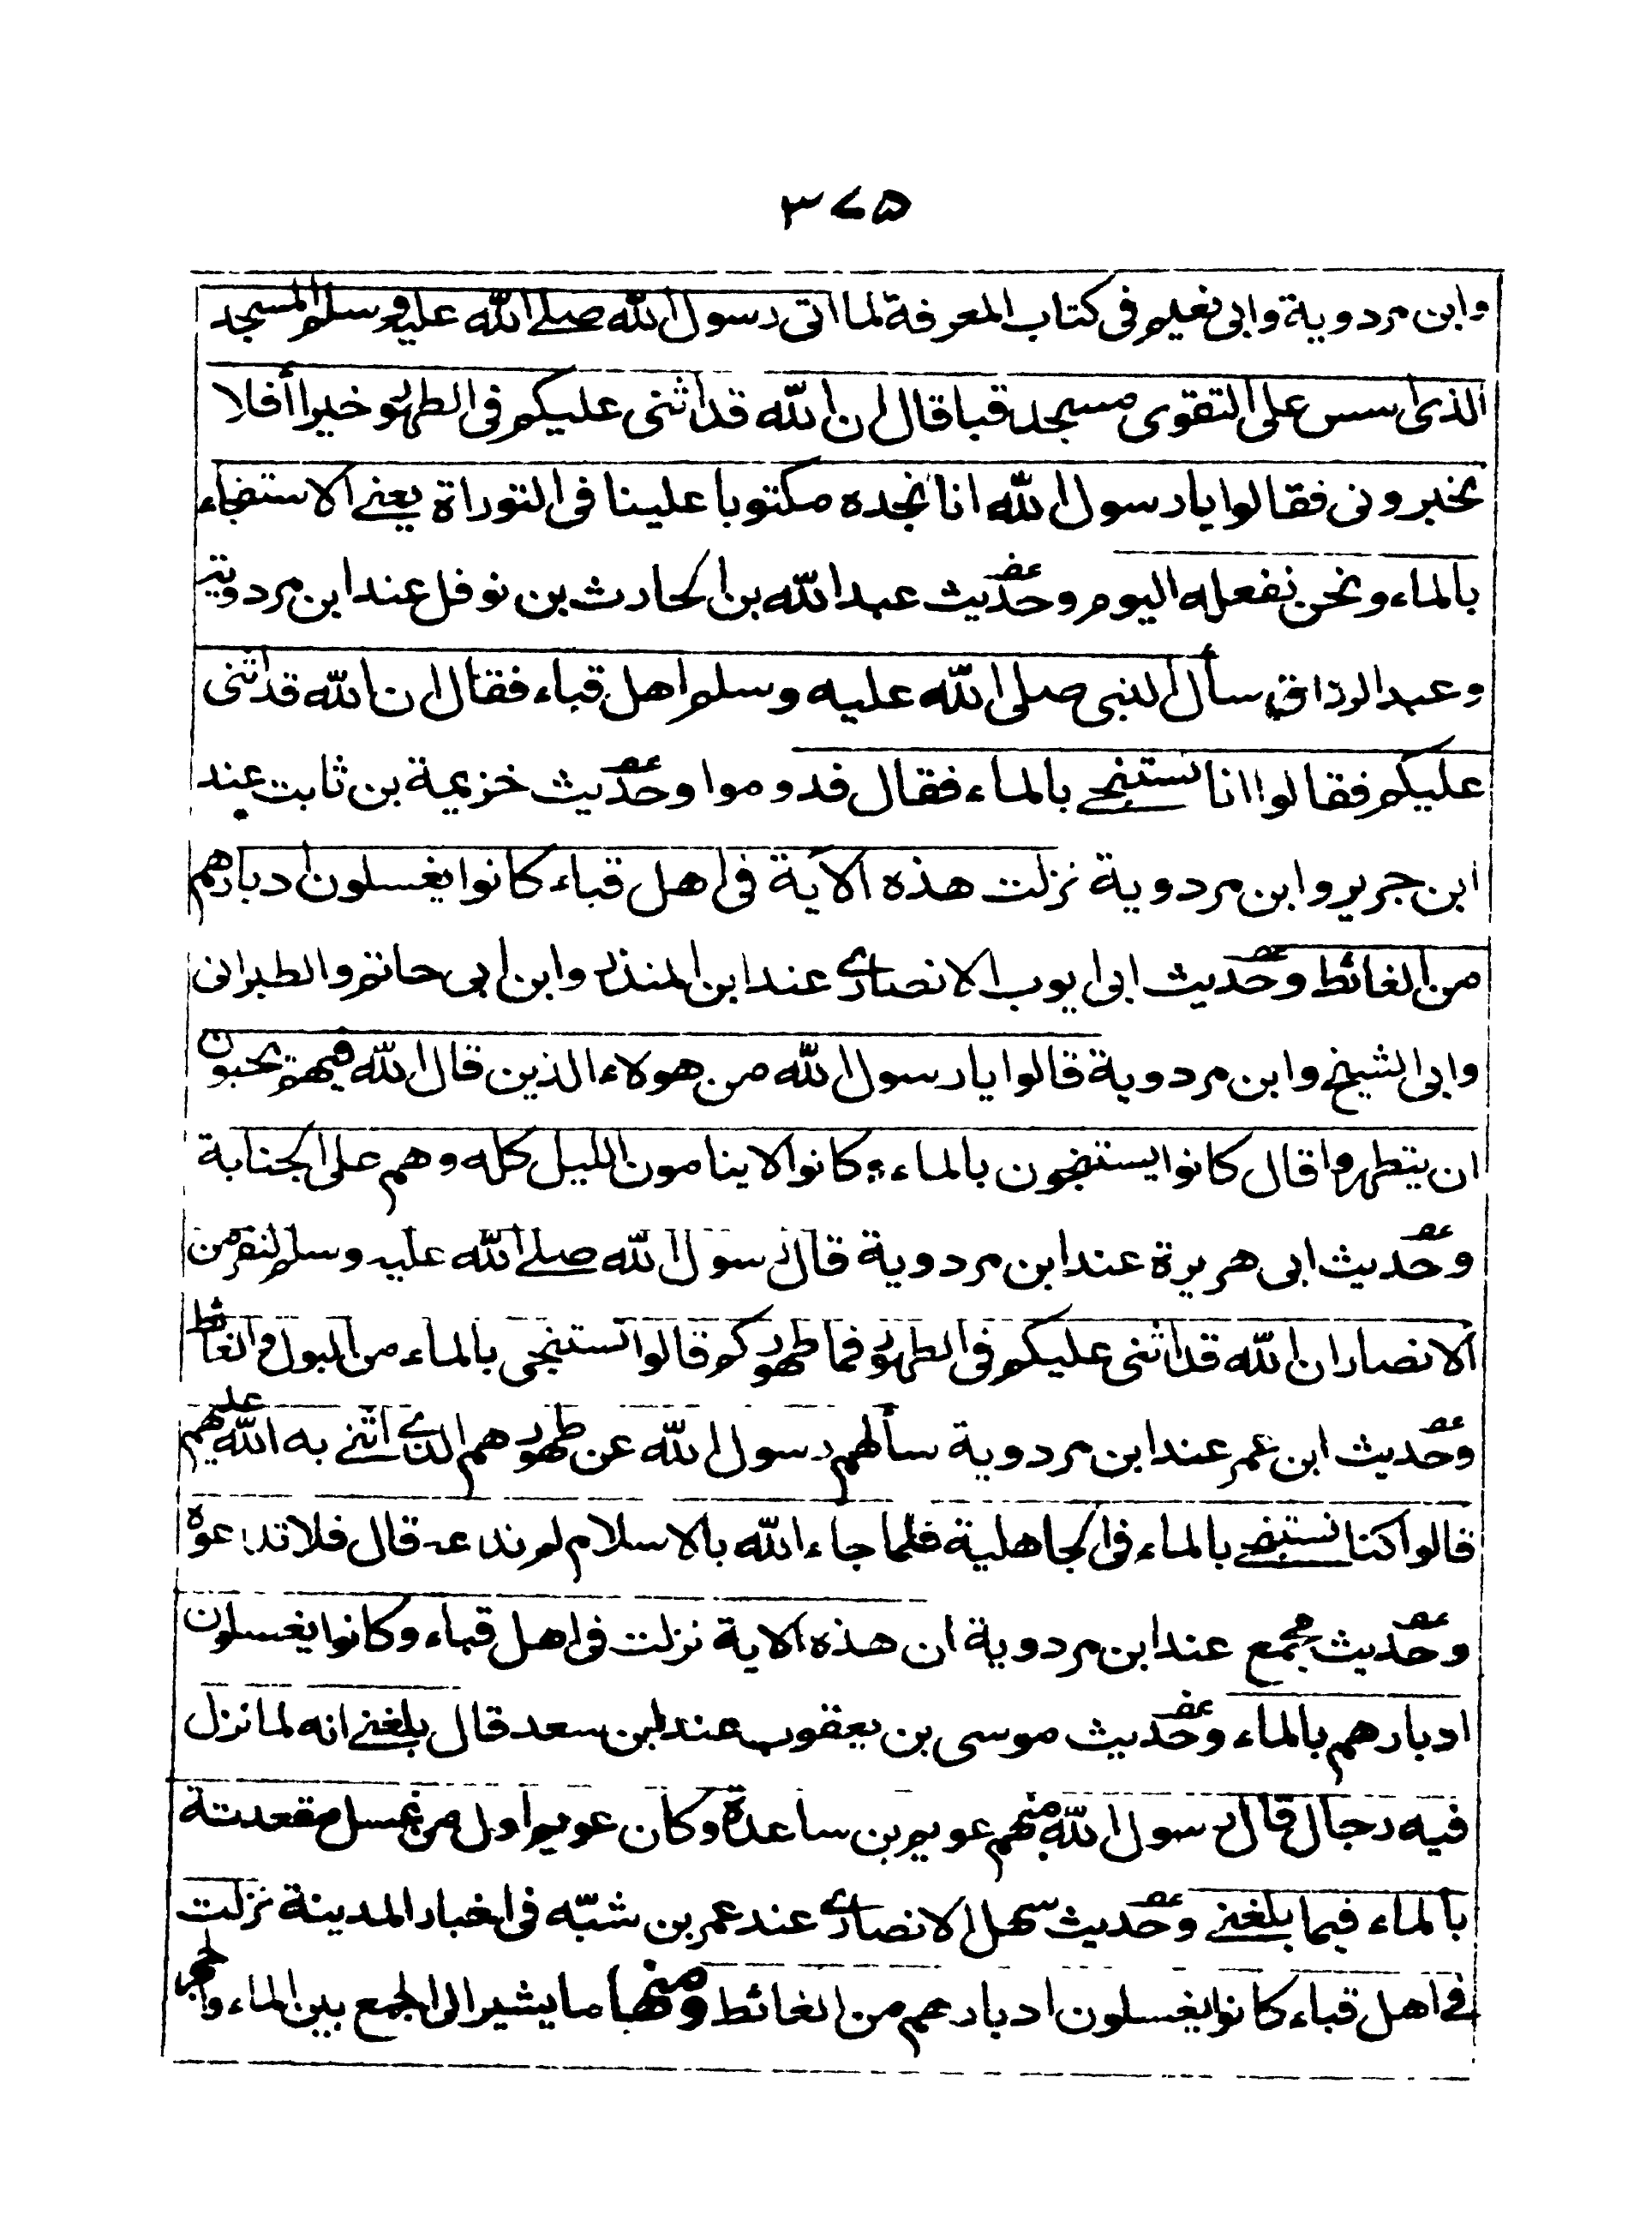 ٣٧٥
وابن مردوية وابى نعيم فى كتاب المعرفة لما اتى رسول الله صلے الله عليه وسلم المسجد
الذى اسس على التقوى مسجد قبا قال ان الله قد اثنى عليكم فى الطهور خيرا أفلا
تخبرونى فقالوا يا رسول الله انا نجده مكتوبا علينا فى التوراة يعنے الاستنجاء
بالماء ونحن نفعله اليوم وحديث عبد الله بن الحارث بن نوفل عند ابن مردوية
وعبد الرزاق سأل النبى صلى الله عليه وسلم اهل قباء فقال ان الله قد اثنى
عليكم فقالوا انا نستنجے بالماء فقال فدوموا وحديث خزيمة بن ثابت عند
ابن جرير وابن مردوية نزلت هذه الآية فى اهل قباء كانوا يغسلون ادبارهم
من الغائط وحديث ابى ايوب الانصارے عند ابن المنذر وابن ابى حاتم والطبرانى
وابى الشيخ وابن مردوية قالوا يا رسول الله من هولاء الذين قال الله فيهم يحبون
ان يتطهروا قال كانوا يستنجون بالماء وكانوا لا ينامون الليل كله وهم على الجنابة
وحديث ابى هريرة عند ابن مردوية قال رسول الله صلے الله عليه وسلم لنفر من
الانصار ان الله قد اثنى عليكم فى الطهور فما طهوركم قالوا نستنجى بالماء من البول والغائط
وحديث ابن عمر عند ابن مردوية سألهم رسول الله عن طهورهم الذے اثنے به الله عليهم
قالوا كنا نستنجے بالماء فى الجاهلية فلما جاء الله بالاسلام لم ندعه قال فلا تدعوه
وحديث مجمع عند ابن مردوية ان هذه الاية نزلت فى اهل قباء وكانوا يغسلون
ادبارهم بالماء وحديث موسى بن يعقوب عند ابن سعد قال بلغنے انه لما نزل
فيه رجال قال رسول الله منهم عويم بن ساعدة وكان عويم اول من غسل مقعدته
بالماء فيما بلغنے وحديث سهل الانصارے عند عمر بن شبّه فى اخبار المدينة نزلت
فے اهل قباء كانوا يغسلون ادبارهم من الغائط ومنها ما يشير الى الجمع بين الماء والحجر